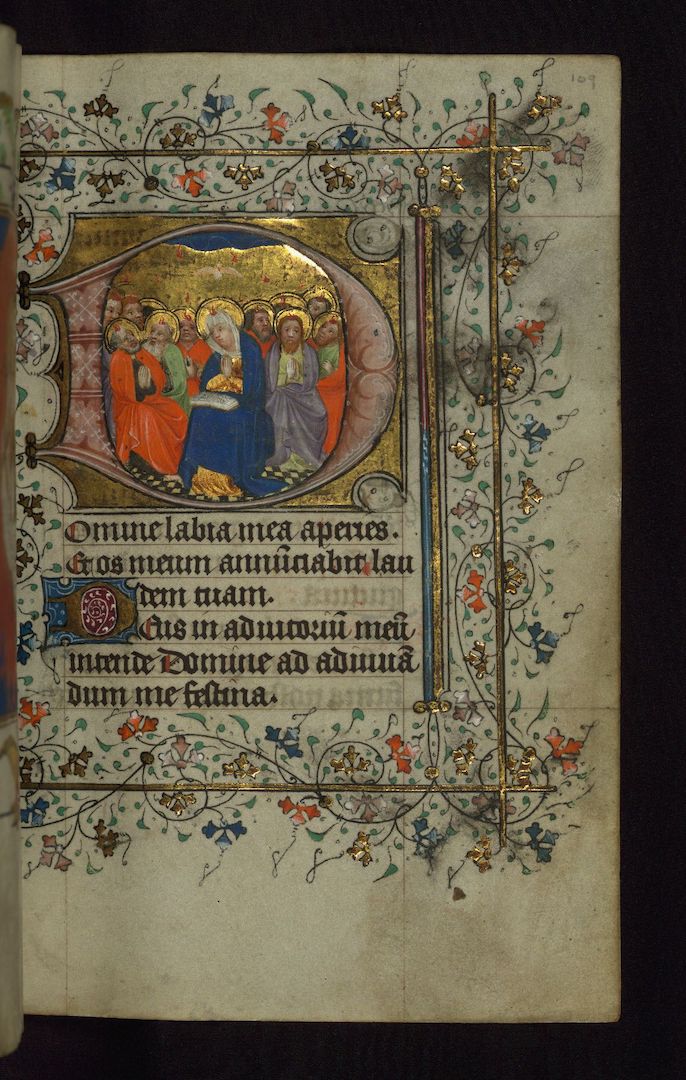 109
Domine labia mea aperies.
Et os meum annūciabit lau
dem tuam.
Deus in adiutoriū meū
intende Domine ad adiuuā
dum me festina.